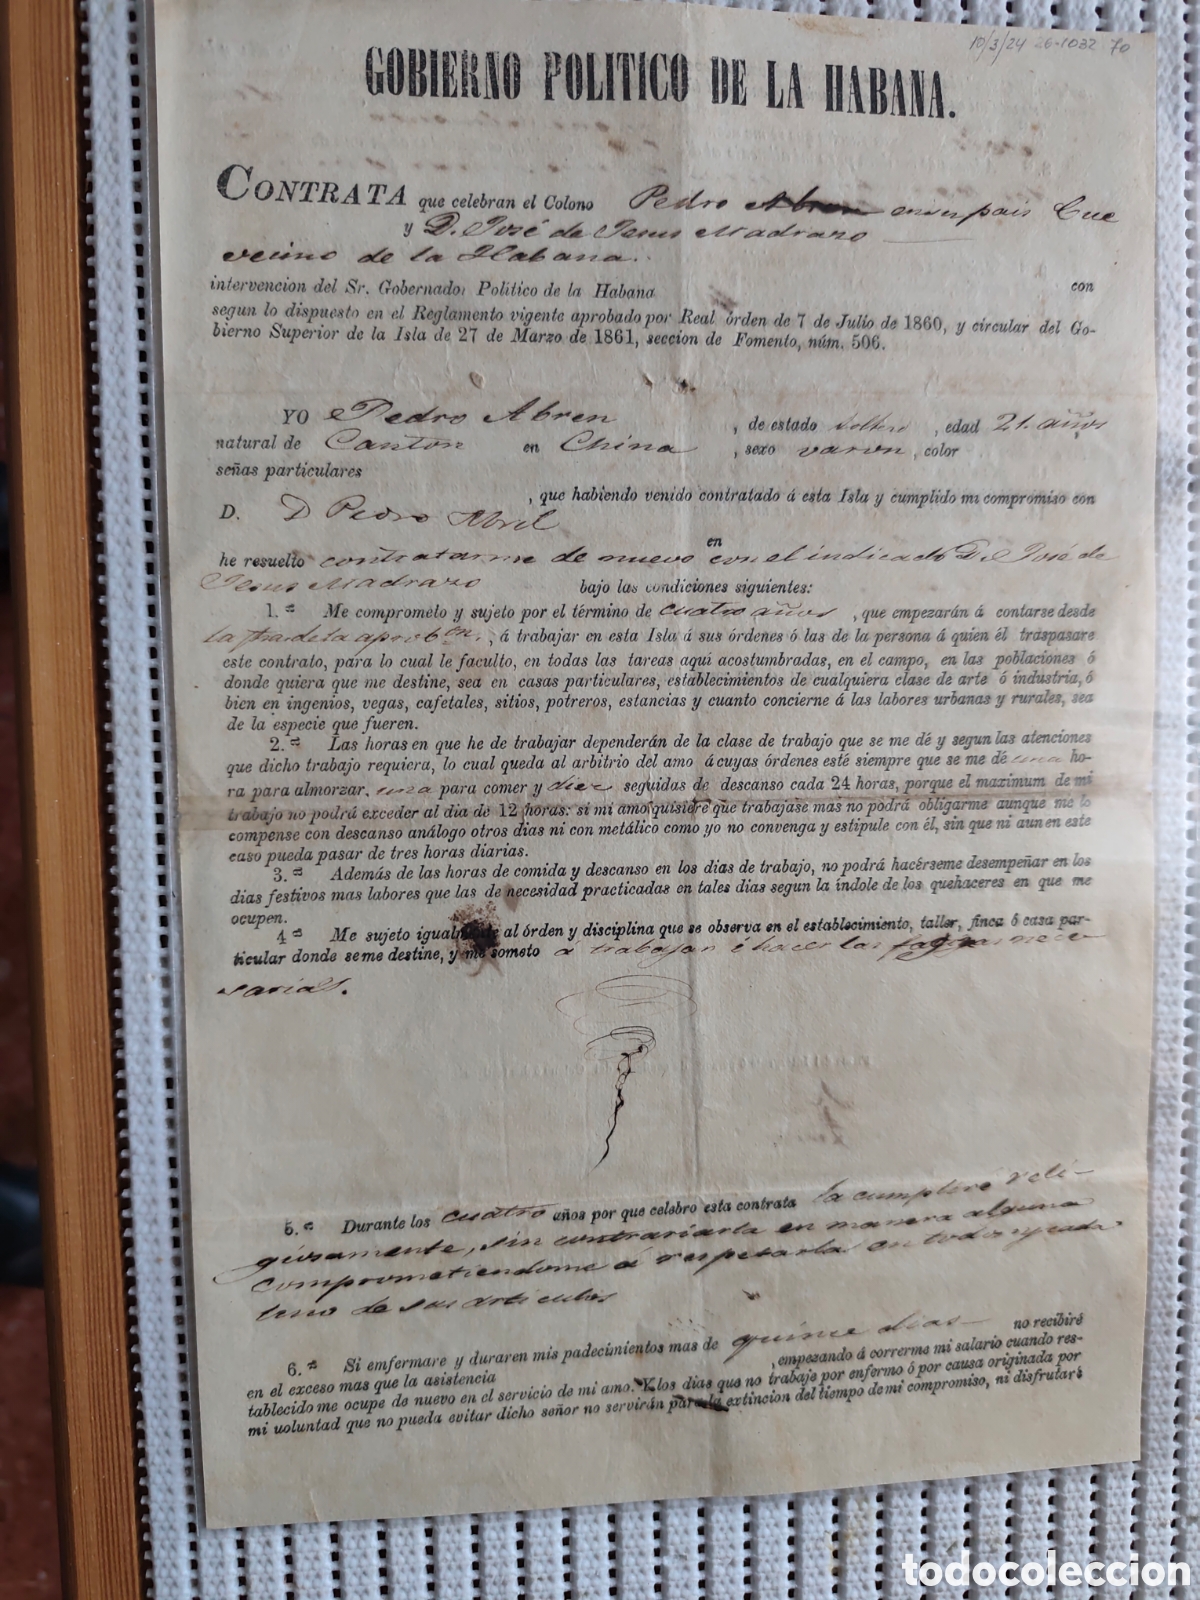 10/3/24 26-1032 70
GOBIERNO POLITICO DE LA HABANA.
CONTRATA que celebran el Colono Pedro Abreu en su pais Cue
y D. José de Jesus Madrazo
vecino de la Habana.
intervencion del Sr. Gobernador Politico de la Habana con
segun lo dispuesto en el Reglamento vigente aprobado por Real órden de 7 de Julio de 1860, y circular del Go-
bierno Superior de la Isla de 27 de Marzo de 1861, seccion de Fomento, núm. 506.
YO Pedro Abreu , de estado soltero , edad 21 años
natural de Canton en China , sexo varon , color
señas particulares
, que habiendo venido contratado á esta Isla y cumplido mi compromiso con
D. D Pedro Abril
en
he resuelto contratarme de nuevo con el indicado D. José de
Jesus Madrazo bajo las condiciones siguientes:
1.ª Me comprometo y sujeto por el término de cuatro años , que empezarán á contarse desde
la de la aprobon. , á trabajar en esta Isla á sus órdenes ó las de la persona á quien él traspasare
este contrato, para lo cual le faculto, en todas las tareas aquí acostumbradas, en el campo, en las poblaciones ó
donde quiera que me destine, sea en casas particulares, establecimientos de cualquiera clase de arte ó industria, ó
bien en ingenios, vegas, cafetales, sitios, potreros, estancias y cuanto concierne á las labores urbanas y rurales, sea
de la especie que fueren.
2.ª Las horas en que he de trabajar dependerán de la clase de trabajo que se me dé y segun las atenciones
que dicho trabajo requiera, lo cual queda al arbitrio del amo á cuyas órdenes esté siempre que se me dé una ho-
ra para almorzar, una para comer y diez seguidas de descanso cada 24 horas, porque el maximum de mi
trabajo no podrá exceder al dia de 12 horas: si mi amo quisiere que trabajase mas no podrá obligarme aunque me lo
compense con descanso análogo otros dias ni con metálico como yo no convenga y estipule con él, sin que ni aun en este
caso pueda pasar de tres horas diarias.
3.ª Además de las horas de comida y descanso en los dias de trabajo, no podrá hacérseme desempeñar en los
dias festivos mas labores que las de necesidad practicadas en tales dias segun la índole de los quehaceres en que me
ocupen.
4.ª Me sujeto igualmente al órden y disciplina que se observa en el establecimiento, taller, finca ó casa par-
ticular donde se me destine, y me someto á trabajar é hacer las faginas nece
sarias.
5.ª Durante los cuatro años por que celebro esta contrata la cumpliré reli-
giosamente, sin contrariarla en manera alguna
comprometiendome á respetarla en todos y cada
uno de sus articulos
6.ª Si enfermare y duraren mis padecimientos mas de quince dias no recibiré
en el exceso mas que la asistencia , empezando á correrme mi salario cuando res-
tablecido me ocupe de nuevo en el servicio de mi amo. Y los dias que no trabaje por enfermo ó por causa originada por
mi voluntad que no pueda evitar dicho señor no servirán para la extincion del tiempo de mi compromiso, ni disfrutaré
todocoleccion